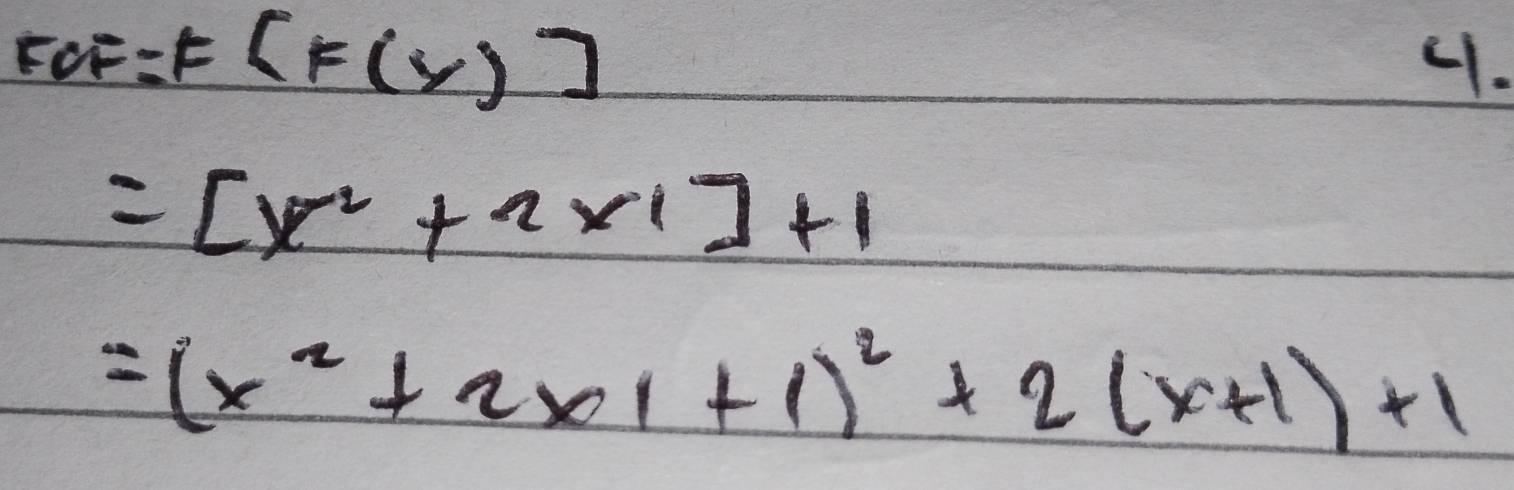 FOF=F[F(y)] 4.
=[x² + 2x1]+1
=(x² + 2x1+1)² + 2(x+1)+1